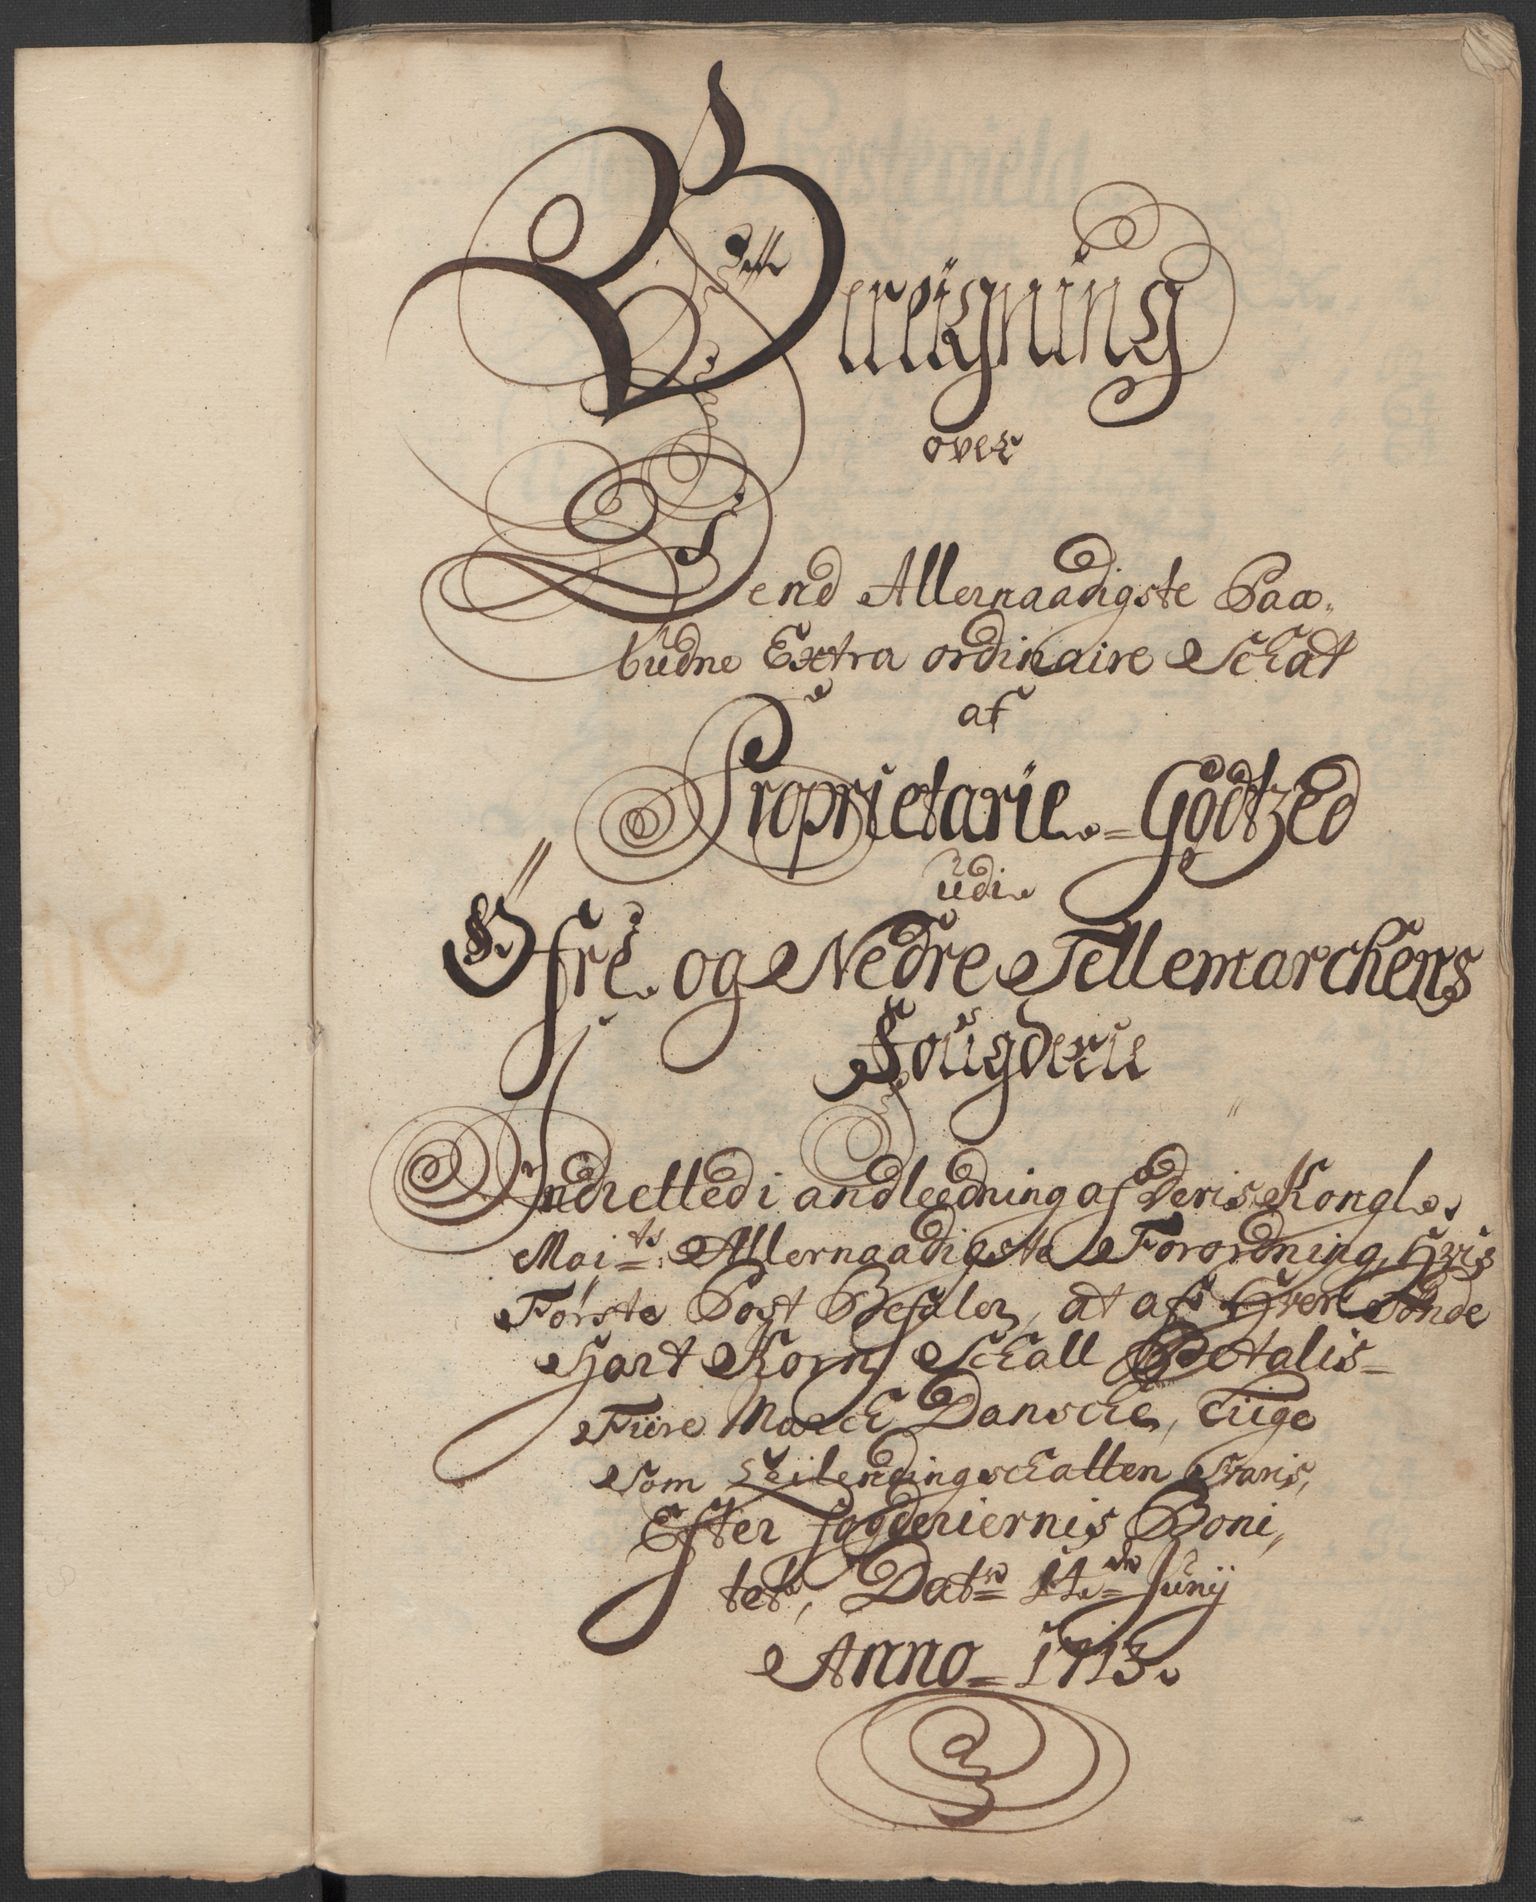 Bereigning
over
Dend Allernaadigste Paa-
büdne Extra ordinaire Schat
af
Proprietarie-Gödtzed
üdi
Öfre og Nedre Tellemarchens
Fougderie
Indretted i andleedning af Deris Kongl.
Maj:ts Allernaadigste Forordning, Hvis
Første Post Befaler, at af Hver Tønde
Hart Korn Schall Betalis
Fiire Marck Danscke, Liige
Som Leilendingschatten Svaris,
Efter fogderiernis Boni,
tet, Dat: 14de Junij
Anno 1713.